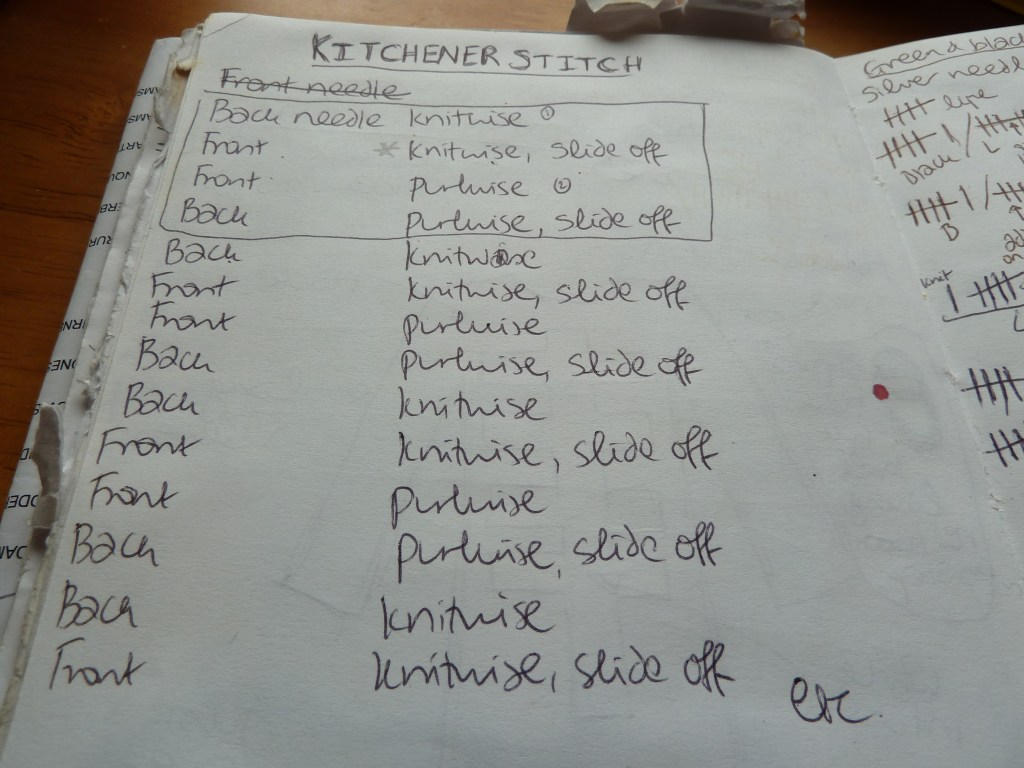 KITCHENER STITCH
Front needle
Back needle knitwise ①
Front * knitwise, slide off
Front purlwise ②
Back purlwise, slide off
Back knitwise
Front knitwise, slide off
Front purlwise
Back purlwise, slide off
Back knitwise
Front knitwise, slide off
Front purlwise
Back purlwise, slide off
Back knitwise
Front knitwise, slide off
etc.
Green & blac
silver need
L
B
knit